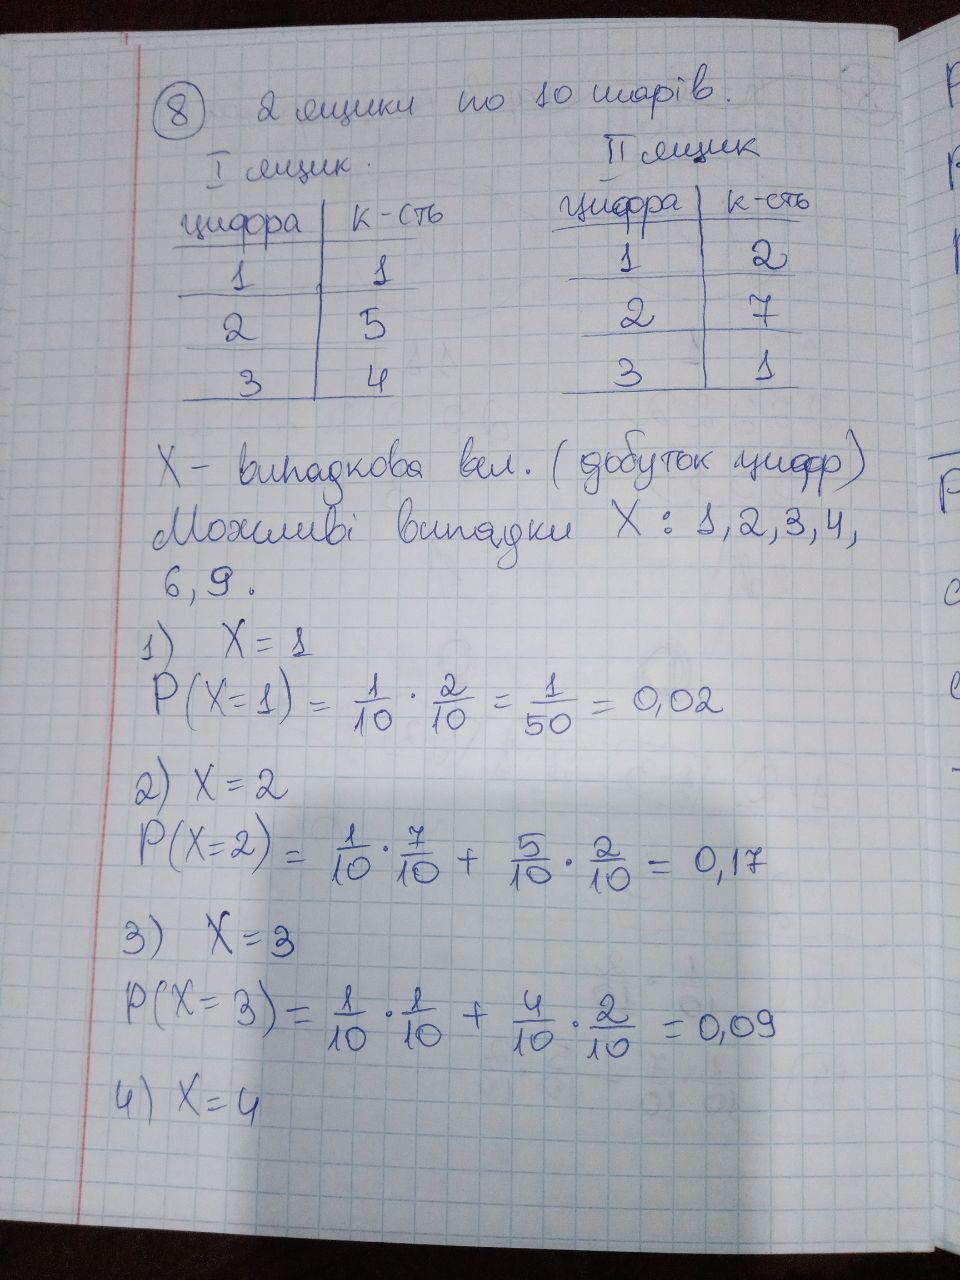 8 2 ящики по 10 шарів.
I ящик. II ящик
цифра к-сть цифра к-сть
1 1 1 2
2 5 2 7
3 4 3 1
X - випадкова вел. (добуток цифр)
Можливі випадки X : 1, 2, 3, 4,
6, 9.
1) X = 1
P(X=1) = 1/10 · 2/10 = 1/50 = 0,02
2) X = 2
P(X=2) = 1/10 · 7/10 + 5/10 · 2/10 = 0,17
3) X = 3
P(X=3) = 1/10 · 1/10 + 4/10 · 2/10 = 0,09
4) X = 4